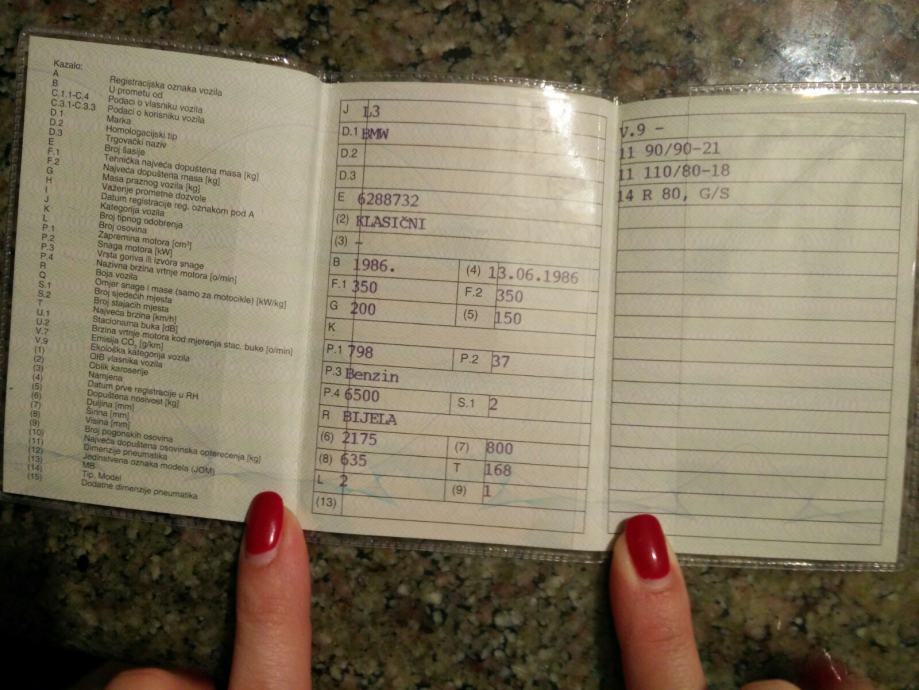 Kazalo:
A Registracijska oznaka vozila
B U prometu od
C.1.1-C.4 Podaci o vlasniku vozila
C.3.1-C.3.3 Podaci o korisniku vozila
D.1 Marka
D.2 Homologacijski tip
D.3 Trgovački naziv
E Broj šasije
F.1 Tehnička najveća dopuštena masa [kg]
F.2 Najveća dopuštena masa [kg]
G Masa praznog vozila [kg]
H Važenje prometne dozvole
I Datum registracije reg. oznakom pod A
J Kategorija vozila
K Broj tipnog odobrenja
L Broj osovina
P.1 Zapremina motora [cm³]
P.2 Snaga motora [kW]
P.3 Vrsta goriva ili izvora snage
P.4 Nazivna brzina vrtnje motora [o/min]
R Boja vozila
Q Omjer snage i mase (samo za motocikle) [kW/kg]
S.1 Broj sjedećih mjesta
S.2 Broj stajaćih mjesta
T Najveća brzina [km/h]
U.1 Stacionarna buka [dB]
U.2 Brzina vrtnje motora kod mjerenja stac. buke [o/min]
V.7 Emisija CO₂ [g/km]
V.9 Ekološka kategorija vozila
(1) OIB vlasnika vozila
(2) Oblik karoserije
(3) Namjena
(4) Datum prve registracije u RH
(5) Dopuštena nosivost [kg]
(6) Duljina [mm]
(7) Širina [mm]
(8) Visina [mm]
(9) Broj pogonskih osovina
(10) Najveća dopuštena osovinska opterećenja [kg]
(11) Dimenzije pneumatika
(12) Jedinstvena oznaka modela (JOM)
(13) MB
(14) Tip, Model
(15) Dodatne dimenzije pneumatika
J L3
D.1 BMW
D.2
D.3
E 6288732
(2) KLASIČNI
(3) -
B 1986. (4) 13.06.1986
F.1 350 F.2 350
G 200 (5) 150
K
P.1 798 P.2 37
P.3 Benzin
P.4 6500 S.1 2
R BIJELA
(6) 2175 (7) 800
(8) 635 T 168
L 2 (9) 1
(13)
V.9 -
11 90/90-21
11 110/80-18
14 R 80, G/S